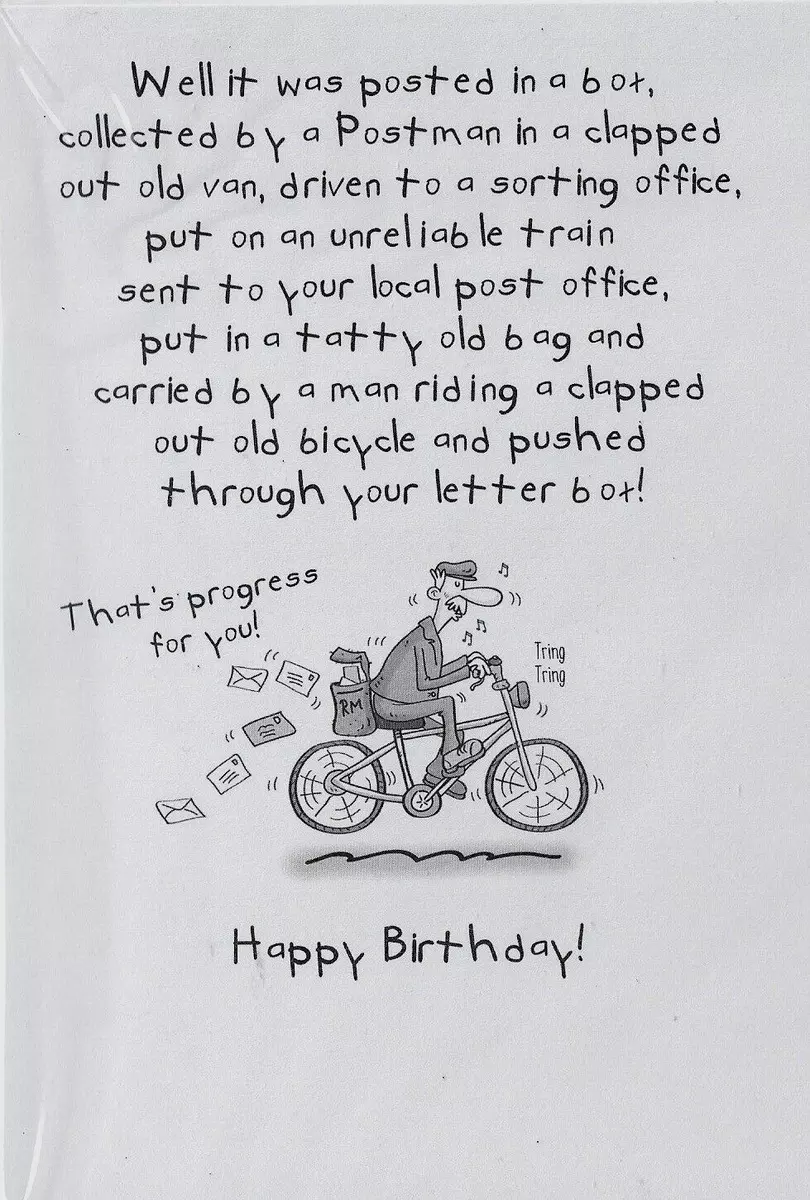 Well it was posted in a box,
collected by a Postman in a clapped
out old van, driven to a sorting office,
put on an unreliable train
sent to your local post office,
put in a tatty old bag and
carried by a man riding a clapped
out old bicycle and pushed
through your letter box!
That's progress
for you!
Tring
Tring
RM
Happy Birthday!